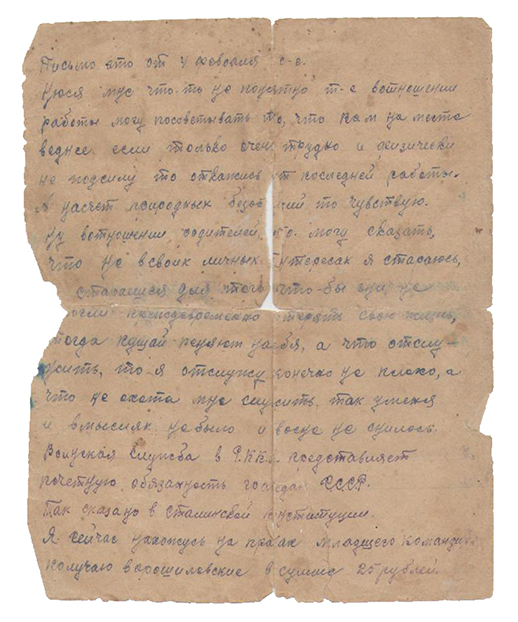 Письмо это от 4 февраля с-е.
Нюся мне что-то не понятно т-е вотношении
работы могу посоветывать то, что вам на месте
веднее если только очен трудно и физически
не подсилу то откажись от последней работы.
А насчет природных бедствий то чувствую.
Ну вотношении родителей могу сказать,
что не всвоих личных интересах я стараюсь,
стараешся для того что-бы они не
преподевременно терять свою жизнь,
тогда кушай а что отслу-
жить, то я отслужу конечно не плохо, а
что не охота мне служить так уменя
и вмыслях небыло и восне не снилось.
Воинская Служба в Р.К.К. представляет
почетную обязаность СССР.
Так сказано в Сталинской конституции.
Я сейчас нахожусь на правах младшего команди
получаю ворошиловские в сумме 25 рублей.